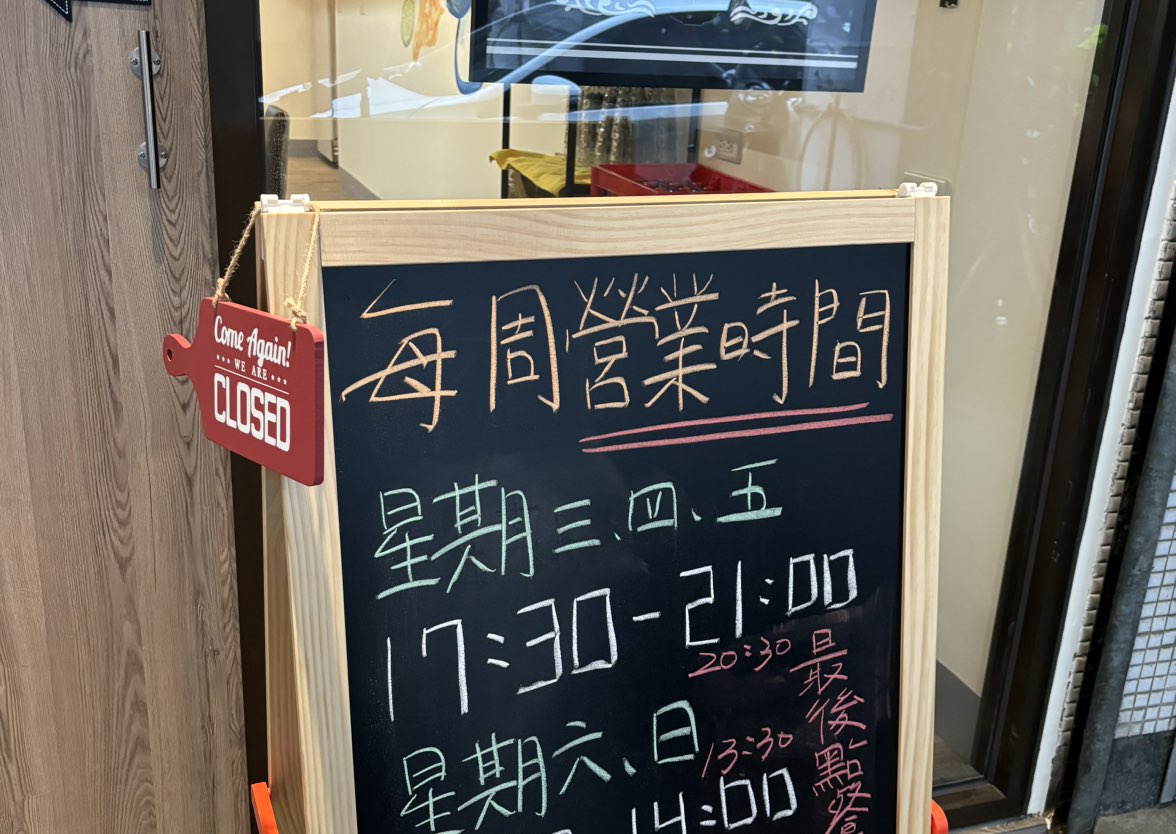 Come Again!
WE ARE
CLOSED
每周營業時間
星期三、四、五
17:30-21:00
20:30
最後點餐
星期六、日
13:30
14:00